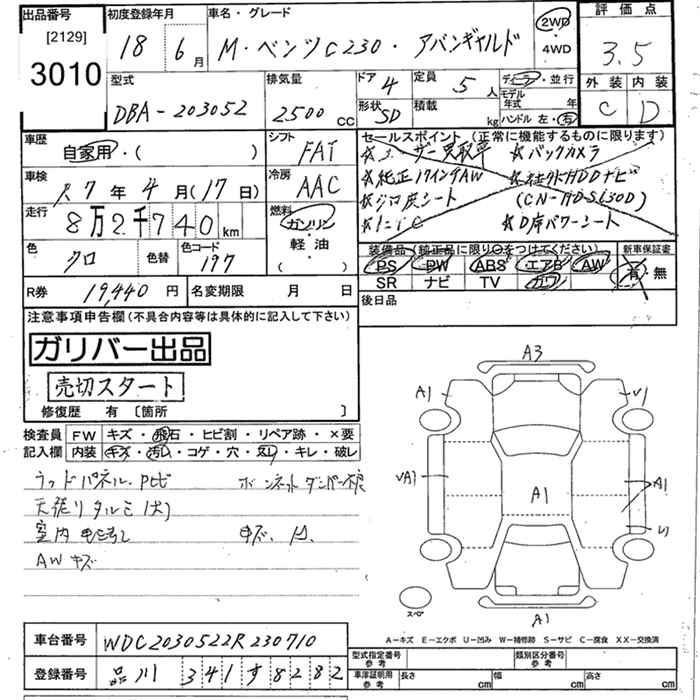 出品番号 初度登録年月 車名・グレード 2WD 評価点
[2129] 3010 18年 6月 M・ベンツC230・アバンギャルド ・4WD 3.5
型式 排気量 ドア 4 定員 5人 ディーラー・並行 外装 内装
DBA-203052 2500cc 形状 SD 積載 kg モデル年式 年 C D
ハンドル 左・右
車歴 シフト セールスポイント(正常に機能するものに限ります)
自家用・( ) FAT ☆ユーザー買取車 ☆バックカメラ
車検 冷房 ☆純正17インチAW ☆社外HDDナビ
7年4月(17日) AAC ☆クロ皮シート (CN-HDS630D)
走行 燃料 ☆ETC ☆D席パワーシート
8万2千740km ガソリン
色 色替 色コード ・軽・油 装備品(純正品に限り○をつけてください) 新車保証書
クロ 197 ・( ) PS PW ABS エアB AW 有・無
SR ナビ TV カワ
R券 19,440円 名変期限 月 日 後日品
注意事項申告欄(不具合内容等は具体的に記入して下さい)
ガリバー出品
売切スタート
修復歴 有〔箇所 〕
A3
A1 V1
検査員 FW キズ・飛石・ヒビ割・リペア跡・×要
記入欄 内装 キズ・汚れ・コゲ・穴・スレ・キレ・破レ
ウッドパネル、ワレヒビ ボンネットダンパー
天張りタルミ(大)
室内 キズ、
AWキズ
A1 A1
スペア A1
A-キズ E-エクボ U-凹み W-補修跡 S-サビ C-腐食 XX-交換済
車台番号 WDC2030522R230710 型式指定番号 参考 類別区分番号 参考
登録番号 品川 341 す 8282 車庫証明用 参考 長さ cm 幅 cm 高さ cm